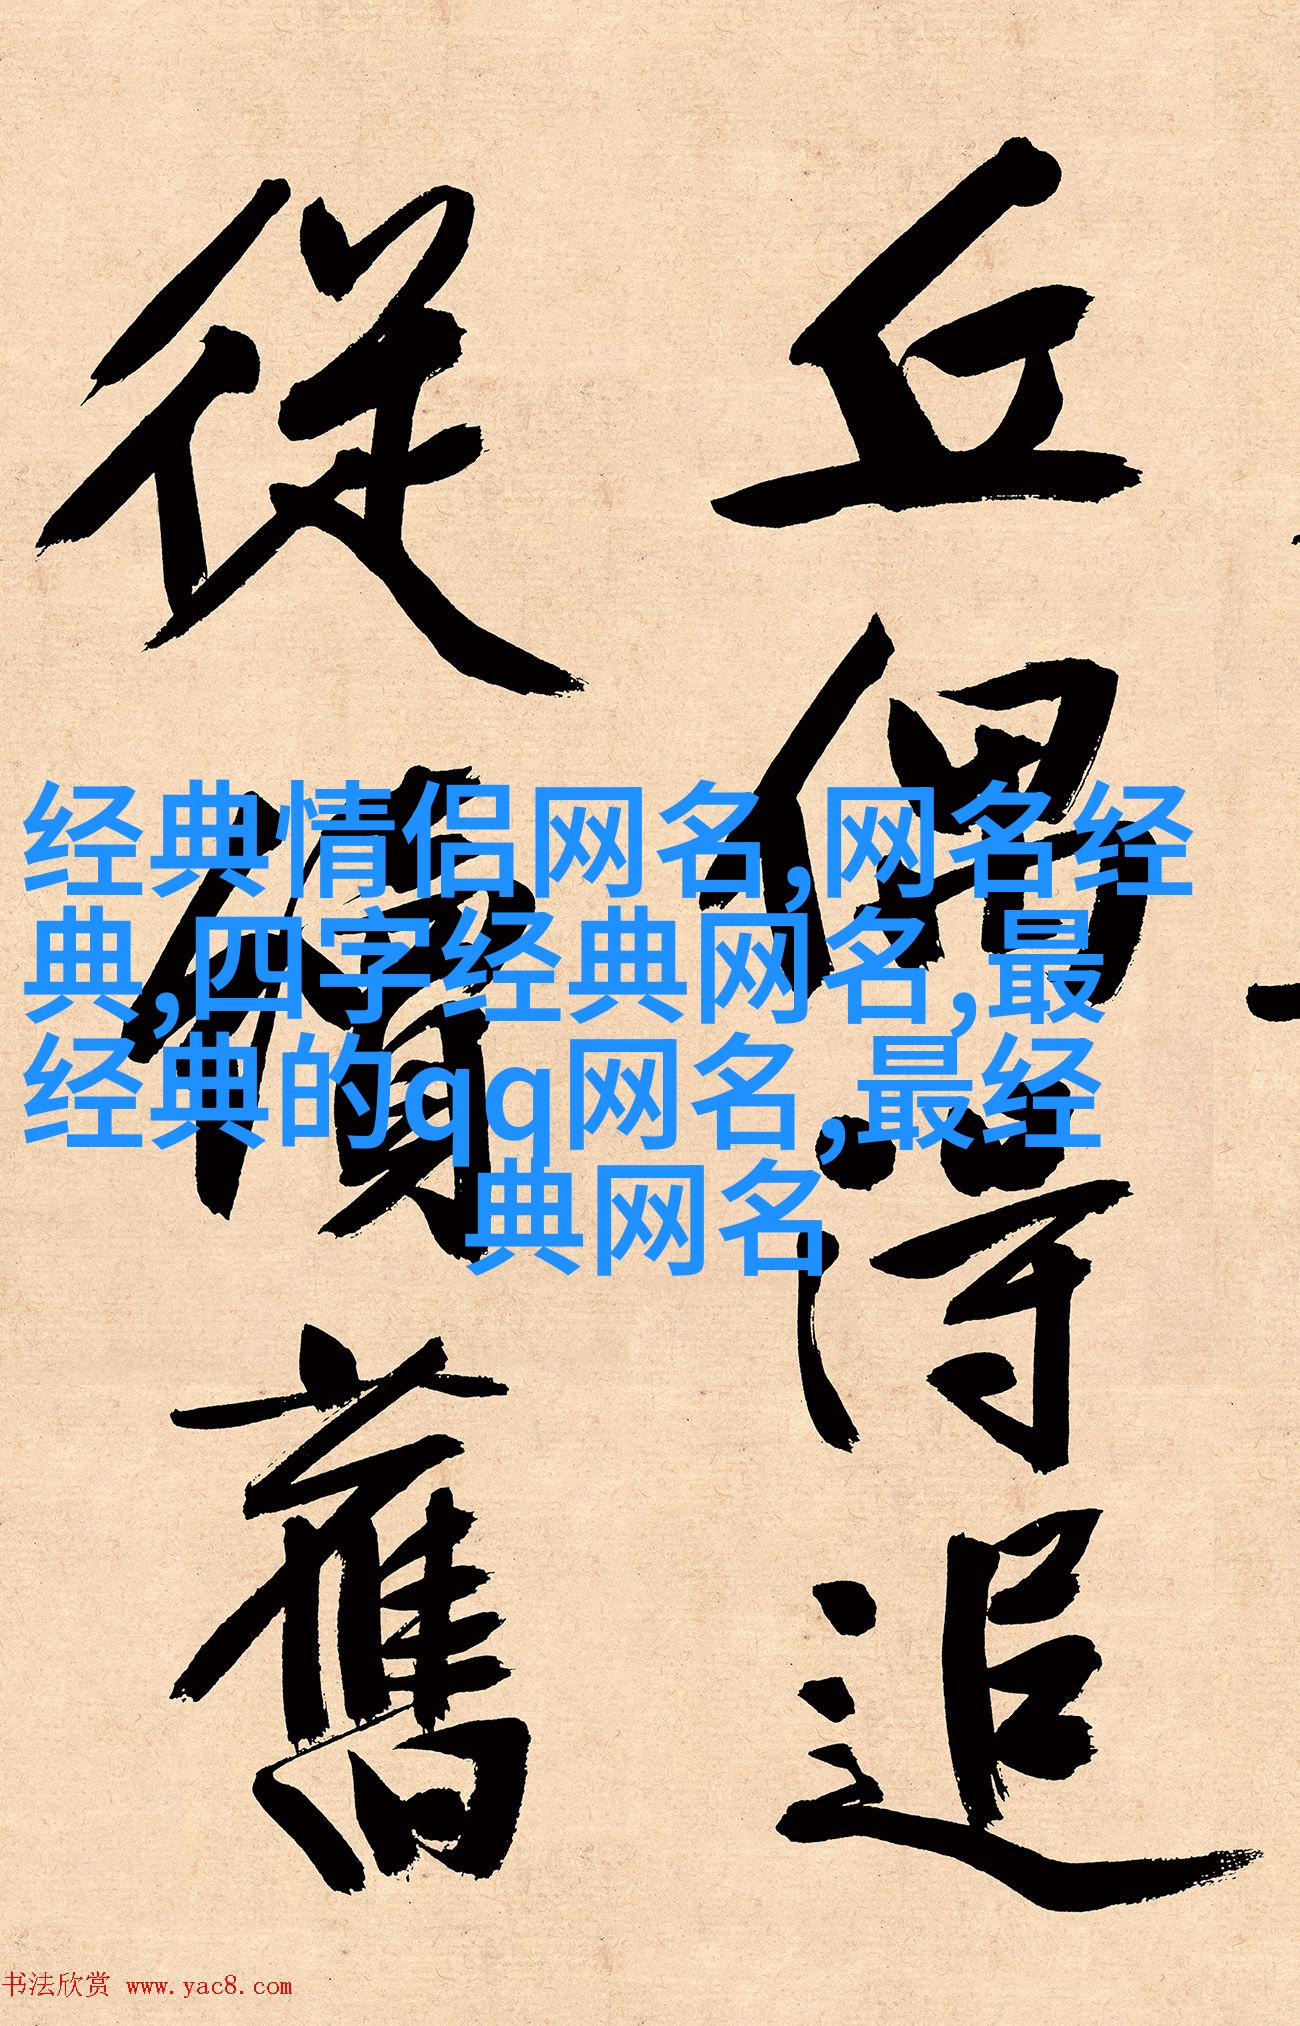 丘偶得追
從償舊
经典情侣网名,网名经
典,四字经典网名,最
经典的qq网名,最经
典网名
书法欣赏 www.yac8.com